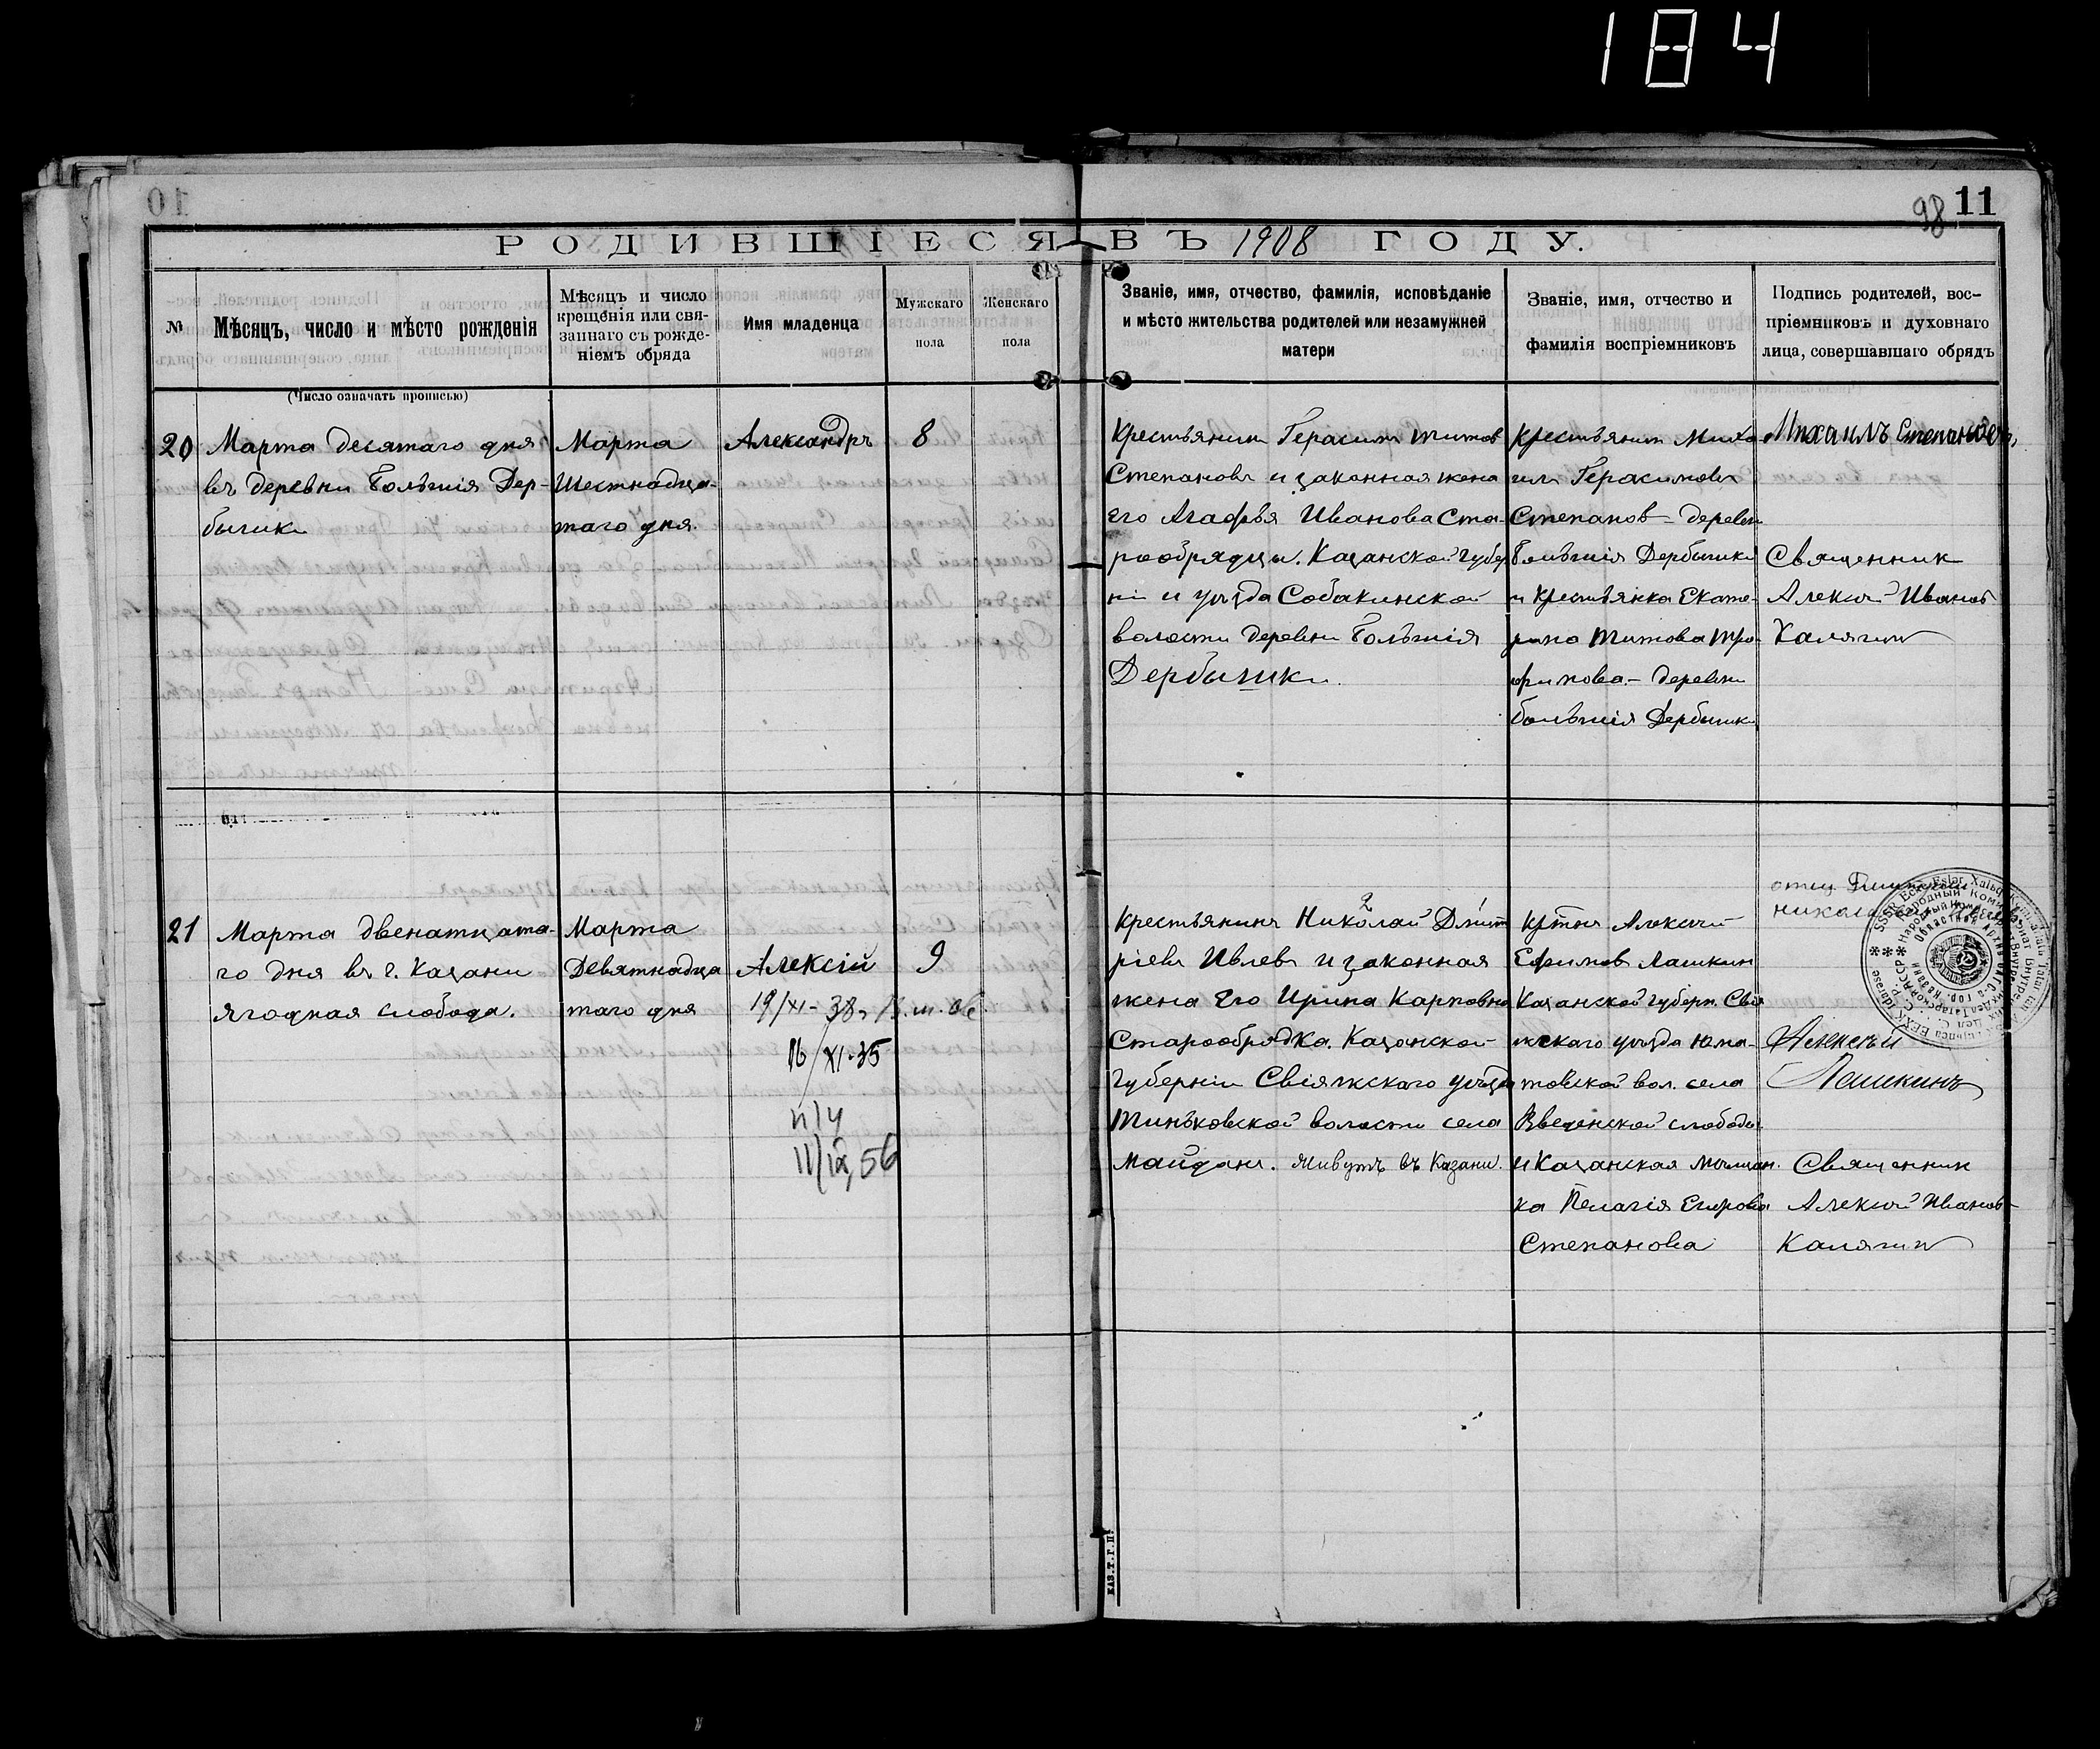 184
98 11
РОДИВШІЕСЯ ВЪ 1908 ГОДУ.
№
Мѣсяцъ, число и мѣсто рожденія
Мѣсяцъ и число
крещенія или свя-
заннаго съ рожде-
ніемъ обряда
Имя младенца
Мужскаго
пола
Женскаго
пола
Званіе, имя, отчество, фамилія, исповѣданіе
и мѣсто жительства родителей или незамужней
матери
Званіе, имя, отчество и
фамилія воспріемниковъ
Подпись родителей, вос-
пріемниковъ и духовнаго
лица, совершавшаго обрядъ
(Число означать прописью)
20
Марта десятаго дня
въ деревни Большія Дер-
бышки
Марта
Шестнадца-
таго дня.
Александръ
8
Крестьянин Герасим Титов
Степановъ и законная жена
его Агафья Иванова Ста-
рообрядцы. Казанской губер
ніи и уѣзда Собакинской
волости деревни Большія
Дербышки.
Крестьянин Миха-
илъ Герасимовъ
Степанов - деревни
Большія Дербышки
и Крестьянка Екате-
рина Титова Тро-
фимова - деревни
большія Дербышки
Михаилъ Степановъ
Священник
Алексѣй Иванов
Калягин
21
Марта двенатцата-
го дня въ г. Казани
Ягодная слобода.
Марта
Девятнадца
таго дня
Алексій
19/XI-38
16/XI-35
п/ч
11/IX 56
9
Крестьянинъ Николай Дмит
ріевъ Ивлевъ и законная
жена его Ирина Карповна
Старообрядка. Казанской
губерніи Свіяжскаго уѣзда
Тиньковской волости села
Майдань. Живутъ въ Казани.
2
Кртнъ Алексѣй
Ефимов Лашкин
Казанской губерн. Свія
жскаго уѣзда Юма-
товской вол. села
Введенской слободы
и Казанская мѣщан.
ка Пелагія Егорова
Степанова
отец
николай
Алексѣй
Лашкинъ
Священник
Алексѣй Иванов
Калягин
КАЗ.Т.Г.П.